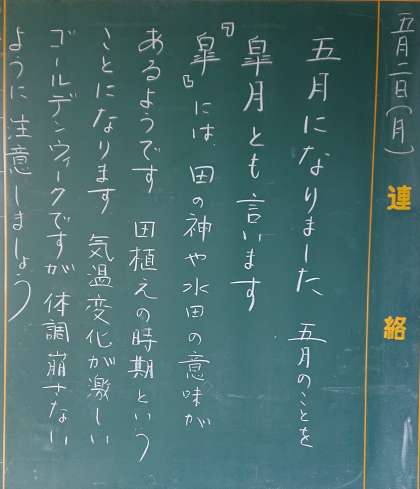 五月二日(月)
連絡
五月になりました、五月のことを
皐月とも言います
「皐」には、田の神や水田の意味が
あるようです 田植えの時期という
ことになります 気温変化が激しい
ゴールデンウィークですが体調崩さない
ように注意しましょう